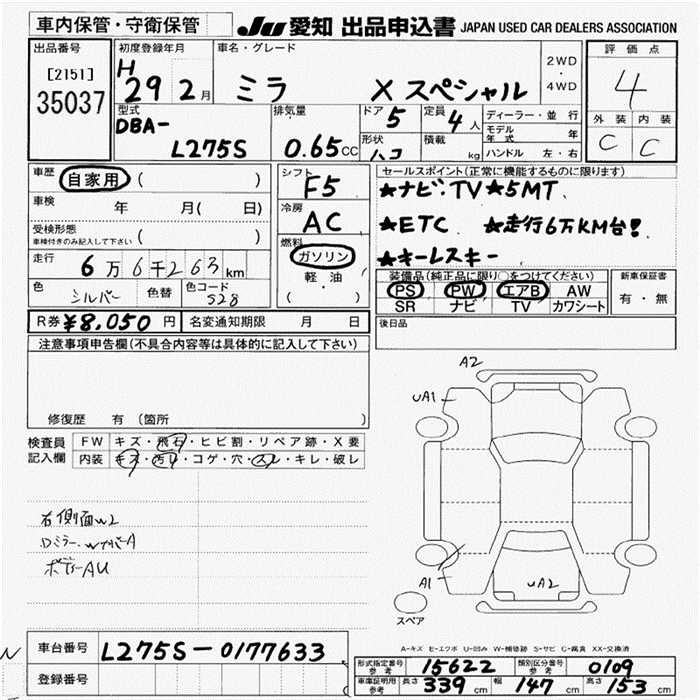 車内保管・守衛保管 JU 愛知 出品申込書 JAPAN USED CAR DEALERS ASSOCIATION
出品番号 [2151] 35037
初度登録年月 H 29 2月
車名・グレード ミラ X スペシャル
2WD・4WD
評価点 4
外装 C 内装 C
型式 DBA-L275S
排気量 0.65CC
ドア 5
定員 4人
形状 ハコ
積載 kg
ディーラー・並行
モデル年式 年
ハンドル 左・右
車歴 自家用 ( )
車検 年 月( 日)
受検形態 車検付きのみ記入して下さい ( )
走行 6万6千263km
色 シルバー 色替 色コード S28
シフト F5
冷房 AC
燃料 ガソリン
軽油
( )
セールスポイント(正常に機能するものに限ります)
★ナビ・TV ★5MT
★ETC ★走行6万KM台!
★キーレスキー
装備品(純正品に限り○をつけてください)
PS PW エアB AW
SR ナビ TV カワシート
新車保証書
有・無
R券 ¥8,050円 名変通知期限 月 日
後日品
注意事項申告欄(不具合内容等は具体的に記入して下さい)
修復歴 有 (箇所 )
検査員記入欄
FW キズ・飛石・ヒビ割・リペア跡・X要
内装 キズ・汚れ・コゲ・穴・スレ・キレ・破レ
右側面W2
Dミラー、WカバーA
ボディーAU
A2
UA1
A1
UA2
スペア
A-キズ E-エクボ U-凹み W-補修跡 S-サビ C-腐食 XX-交換済
N
車台番号 L275S-0177633
登録番号
形式指定番号 参考 15622 類別区分番号 参考 0109
車庫証明用 参考 長さ 339cm 幅 147cm 高さ 153cm